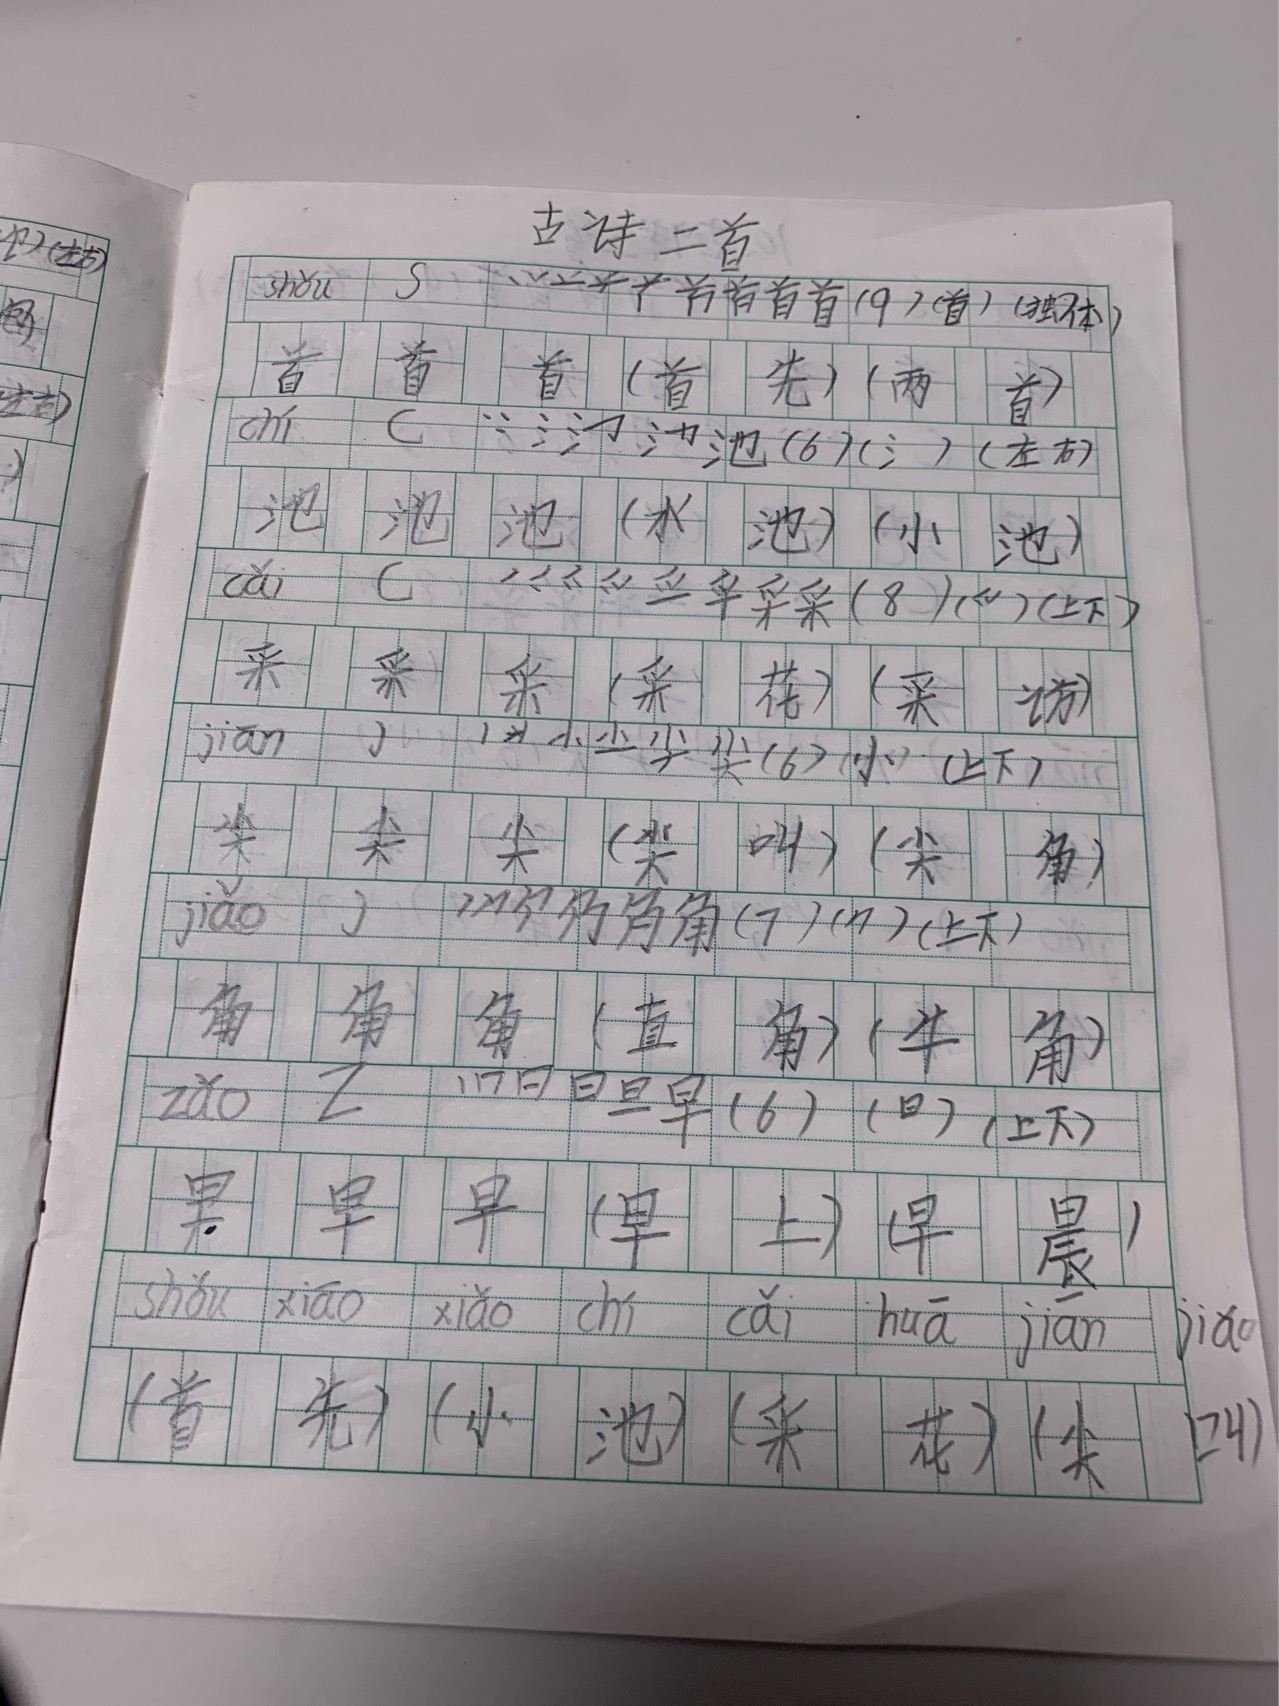 古诗二首
shǒu S 首首首(9)(首)(独体)
首 首 首 (首 先) (两 首)
chí C 池(6)(氵)(左右)
池 池 池 (水 池) (小 池)
cǎi C 采采(8)(爫)(上下)
采 采 采 (采 花) (采 访)
jiān J 小尖(6)(小)(上下)
尖 尖 尖 (尖 叫) (尖 角)
jiǎo J 角角(7)(⺈)(上下)
角 角 角 (直 角) (牛 角)
zǎo Z 日日旦早(6)(日)(上下)
早 早 早 (早 上) (早 晨)
shǒu xiāo xiǎo chí cǎi huā jiān jiao
(首 先) (小 池) (采 花) (尖 叫)